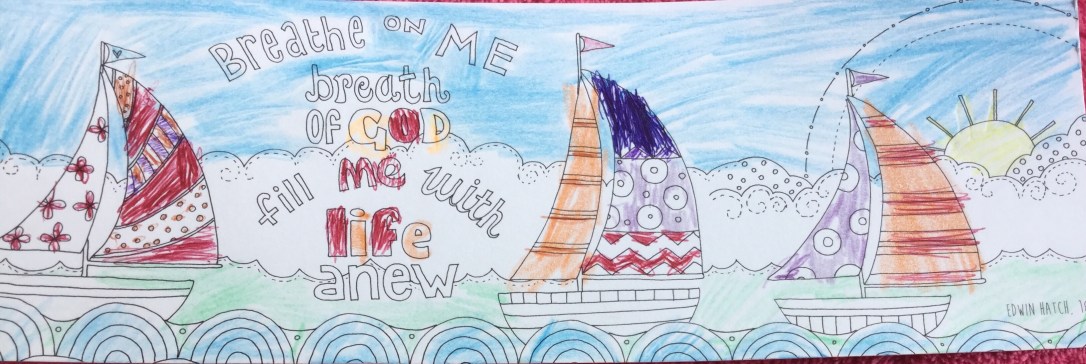 Breathe ON ME
breath
OF GOD
fill me with
life
anew
EDWIN HATCH,